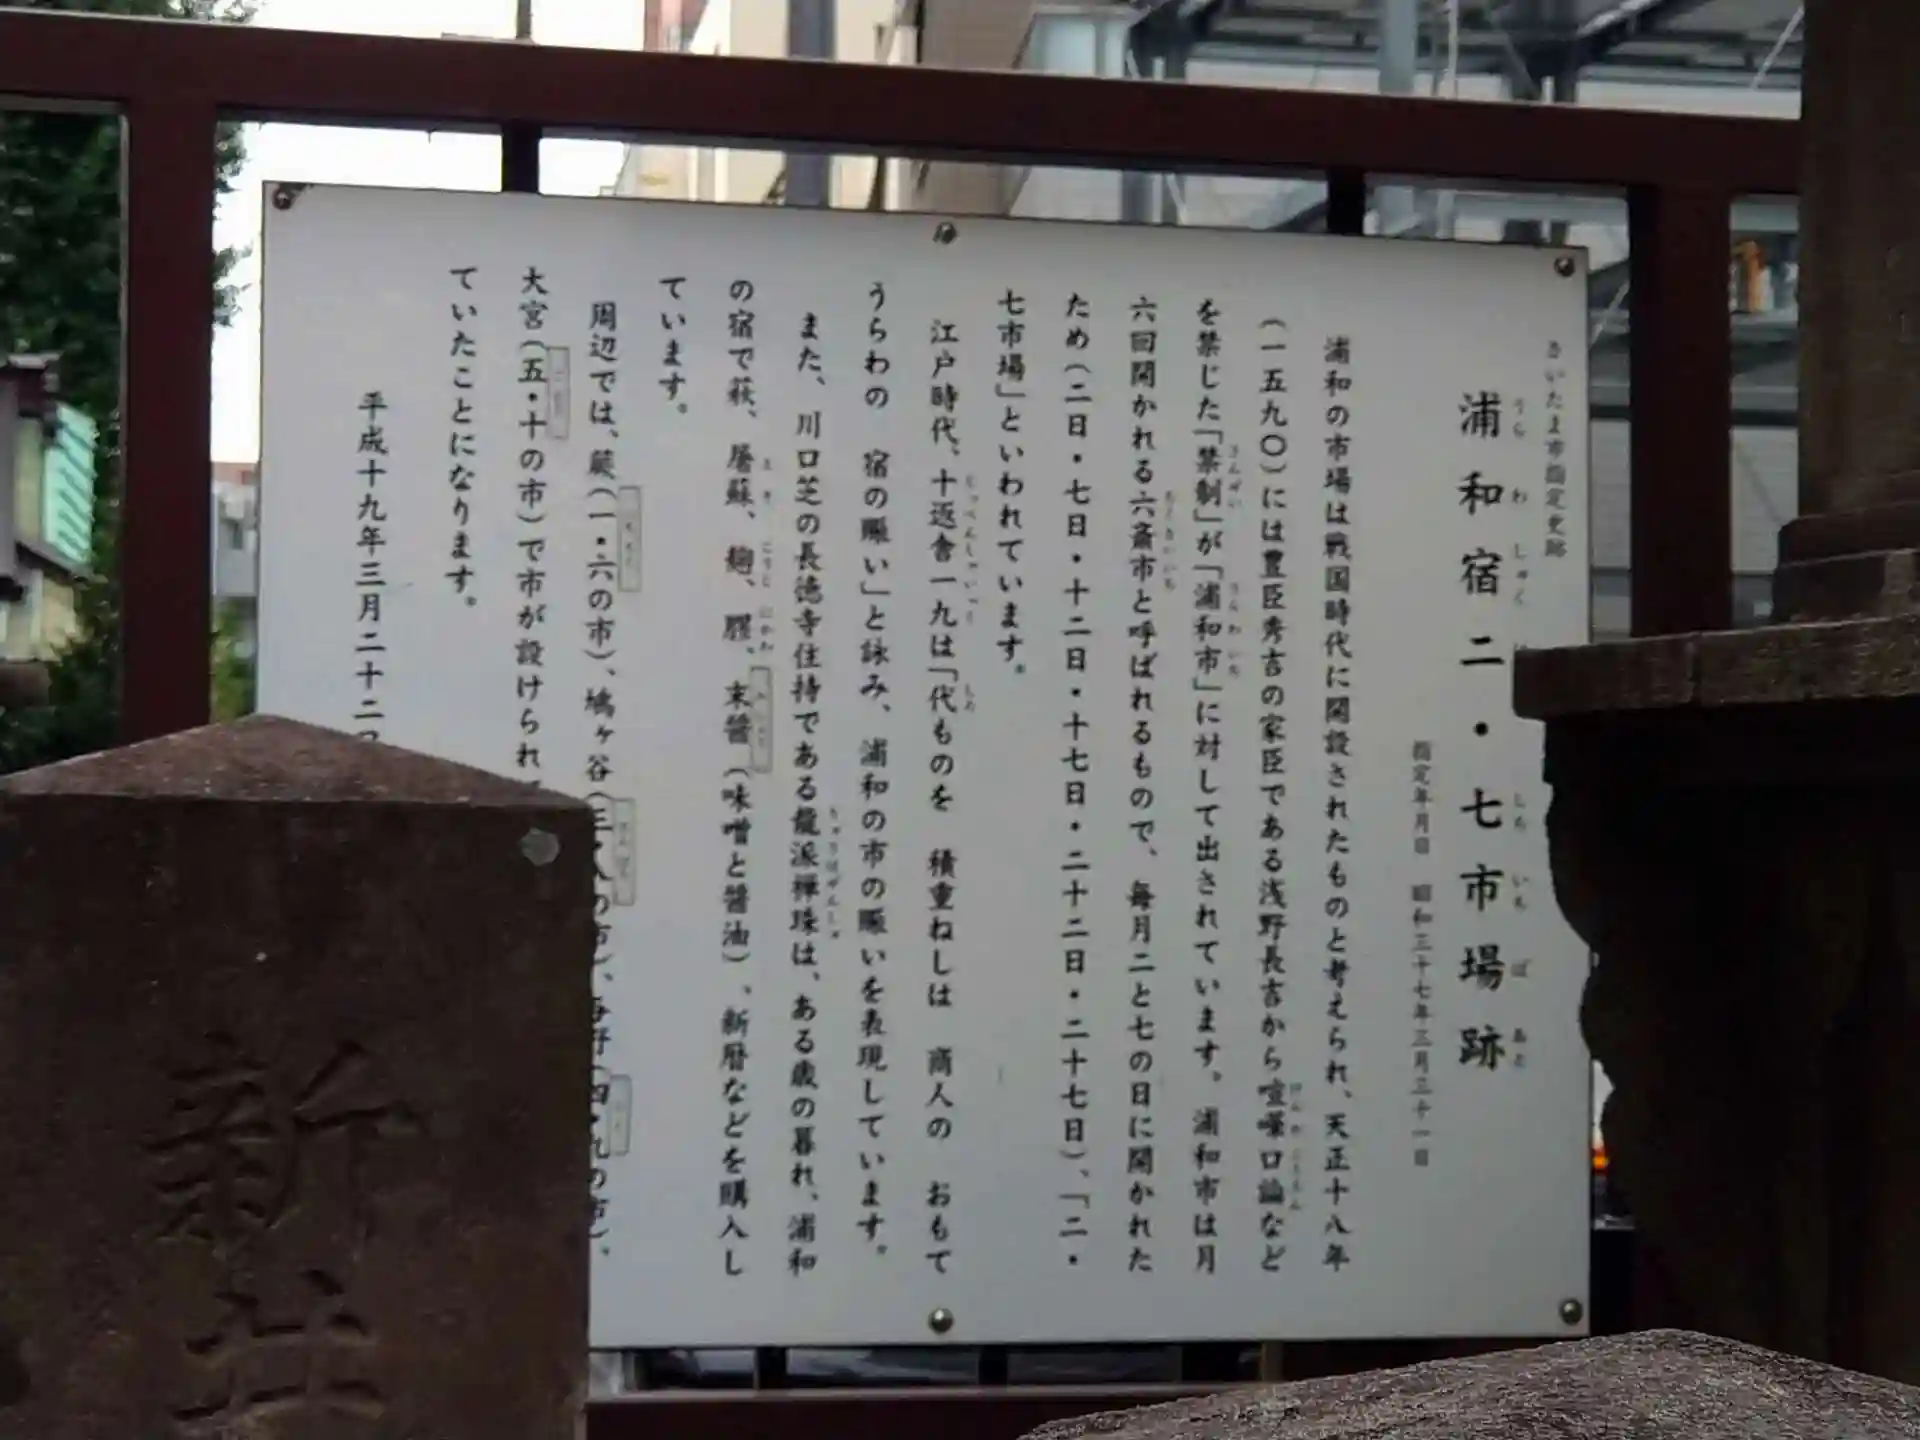 さいたま市指定史跡
浦和宿二・七市場跡
指定年月日 昭和三十七年三月三十一日
浦和の市場は戦国時代に開設されたものと考えられ、天正十八年
(一五九〇)には豊臣秀吉の家臣である浅野長吉から喧嘩口論など
を禁じた「禁制」が「浦和市」に対して出されています。浦和市は月
六回開かれる六斎市と呼ばれるもので、毎月二と七の日に開かれた
ため(二日・七日・十二日・十七日・二十二日・二十七日)、「二・
七市場」といわれています。
江戸時代、十返舎一九は「代ものを 積重ねしは 商人の おもて
うらわの 宿の賑い」と詠み、浦和の市の賑いを表現しています。
また、川口芝の長徳寺住持である龍派禅珠は、ある歳の暮れ、浦和
の宿で萩、屠蘇、麹、膠、末醤(味噌と醤油)、新暦などを購入し
ています。
周辺では、蕨(一・六の市)、鳩ヶ谷(三・八の市)、与野(四・九の市)、
大宮(五・十の市)で市が設けられ
ていたことになります。
平成十九年三月二十二
新井